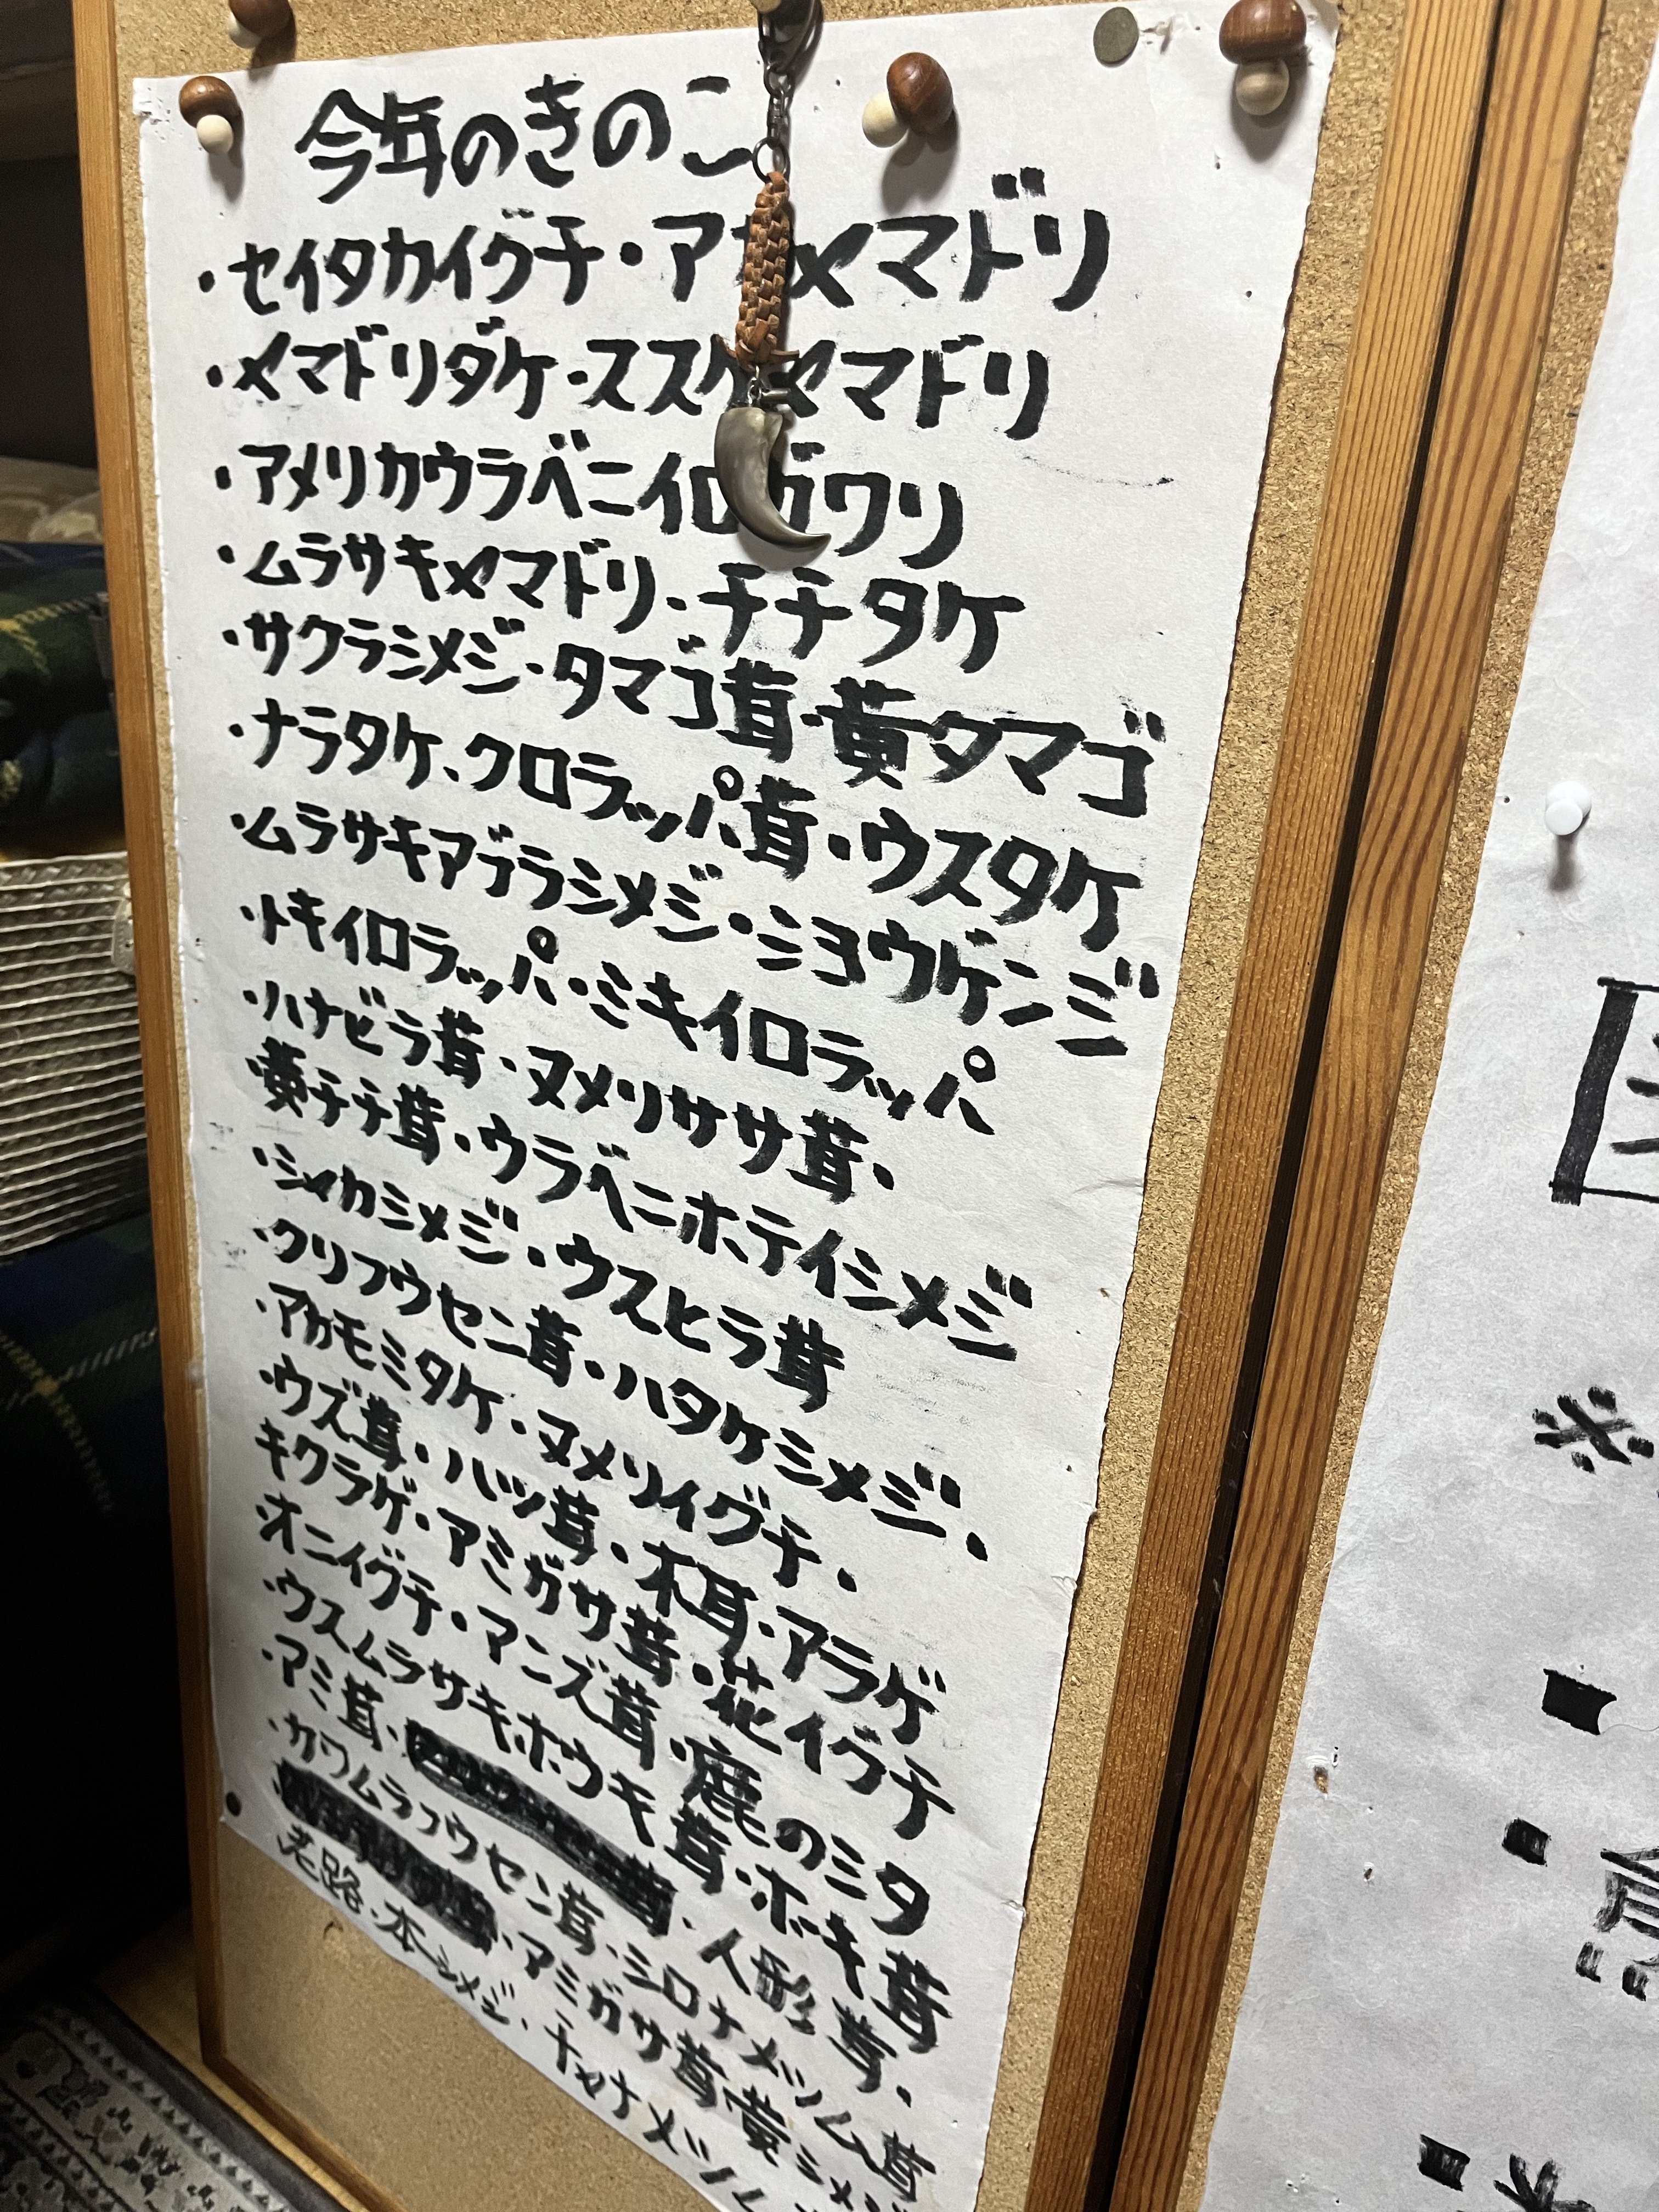 今年のきのこ
・セイタカイグチ・アカヤマドリ
・ヤマドリダケ・ススケヤマドリ
・アメリカウラベニイロガワリ
・ムラサキヤマドリ・チチタケ
・サクラシメジ・タマゴ茸・黄タマゴ
・ナラタケ、クロラッパ茸・ウスタケ
・ムラサキアブラシメジ・ショウゲンジ
・トキイロラッパ・ミキイロラッパ
・ハナビラ茸・ヌメリササ茸・
黄チチ茸・ウラベニホテイシメジ
・シャカシメジ・ウスヒラ茸
・クリフウセン茸・ハタケシメジ・
・アカモミタケ・ヌメリイグチ・
・ウズ茸・ハツ茸・木耳・アラゲ
キクラゲ・アミガサ茸・花イグチ
・オニイグチ・マンズ茸・鹿のシタ
・ウスムラサキホウキ茸・ホウキ茸
・アミ茸・人形茸・
・カワムラフウセン茸・シロナメツムタケ
・アミガサ茸・黄シメジ
老路・本シメジ・チャナメツム
※